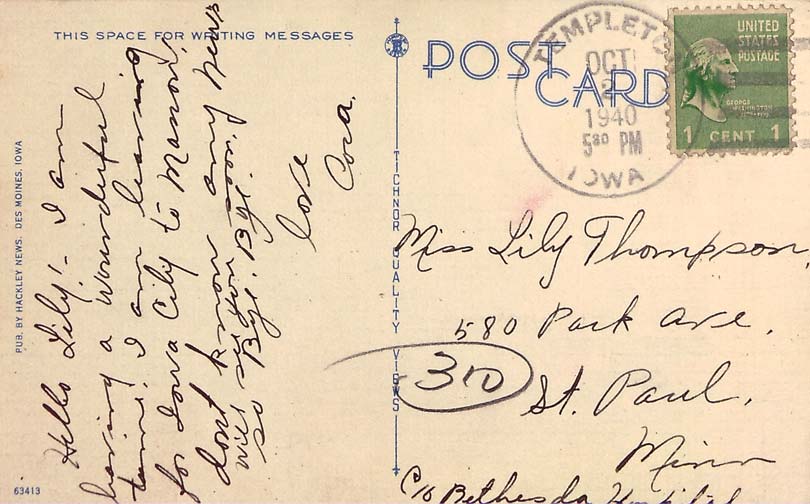 THIS SPACE FOR WRITING MESSAGES
POST CARD
TEMPLETON
OCT
2
1940
5 30 PM
IOWA
UNITED
STATES
POSTAGE
GEORGE
WASHINGTON
1 CENT 1
Hello Lily! - I am
having a wounderful
time. I am leaving
for Iowa City to Manson,
dont know any news
will see you soon.
so Bye. Bye.
love
Cora.
Miss Lily Thompson,
580 Park Ave.
310
St. Paul,
Minn
C/o Bethesda Hospital
TICHNOR QUALITY VIEWS
PUB. BY HACKLEY NEWS. DES MOINES, IOWA
63413